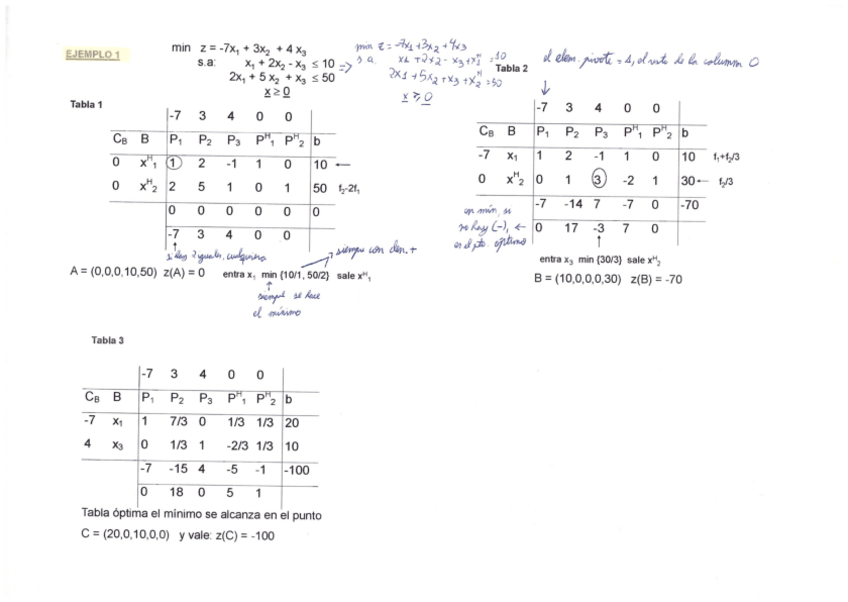 EJEMPLO 1
min z = -7x₁ + 3x₂ + 4 x₃
s.a: x₁ + 2x₂ - x₃ ≤ 10 =>
2x₁ + 5 x₂ + x₃ ≤ 50
x ≥ 0
min z = -7x1 +3x2 +4x3
s a x1 +2x2 - x3 +x1ᴴ =10
2x1 +5x2 +x3 +x2ᴴ =50
x ≥ 0
el elem. pivote = 1, el resto de la columna 0
Tabla 1
-7 3 4 0 0
C_B B P₁ P₂ P₃ Pᴴ₁ Pᴴ₂ b
0 xᴴ₁ 1 2 -1 1 0 10 ←
0 xᴴ₂ 2 5 1 0 1 50 f₂-2f₁
0 0 0 0 0 0
-7 3 4 0 0
si hay 2 iguales, cualquiera
siempre con den. +
A = (0,0,0,10,50) z(A) = 0 entra x₁ min {10/1, 50/2} sale xᴴ₁
siempre se hace
el mínimo
Tabla 2
-7 3 4 0 0
C_B B P₁ P₂ P₃ Pᴴ₁ Pᴴ₂ b
-7 x₁ 1 2 -1 1 0 10 f₁+f₂/3
0 xᴴ₂ 0 1 3 -2 1 30 ← f₂/3
-7 -14 7 -7 0 -70
0 17 -3 7 0
en min, si
no hay (-), ←
es el pto. óptimo
entra x₃ min {30/3} sale xᴴ₂
B = (10,0,0,0,30) z(B) = -70
Tabla 3
-7 3 4 0 0
C_B B P₁ P₂ P₃ Pᴴ₁ Pᴴ₂ b
-7 x₁ 1 7/3 0 1/3 1/3 20
4 x₃ 0 1/3 1 -2/3 1/3 10
-7 -15 4 -5 -1 -100
0 18 0 5 1
Tabla óptima el mínimo se alcanza en el punto
C = (20,0,10,0,0) y vale: z(C) = -100